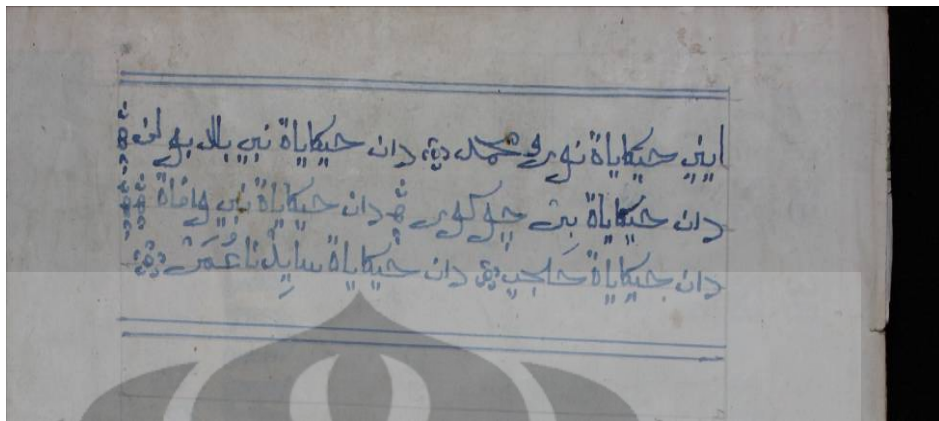 ايني حيكاياة نور محمد دان حيكاياة نبي بلاه بولن
دان حيكاياة نبي چوكور دان حيكاياة نبي وافاة
دان حيكاياة دان حيكاياة سايدنا عُمَر